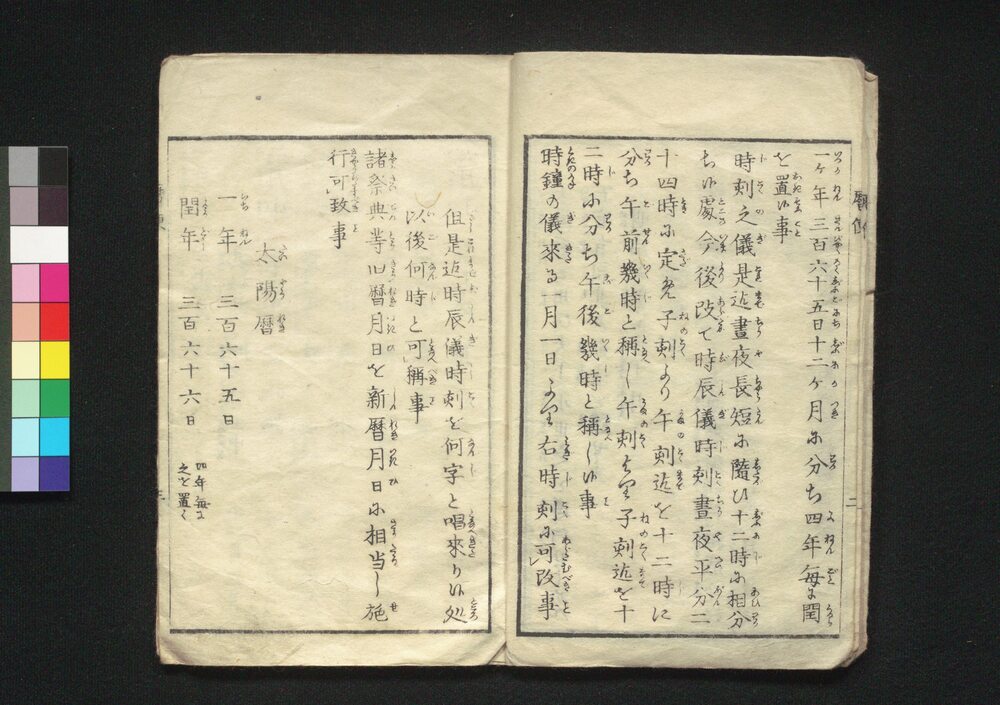 一ヶ年三百六十五日十二ヶ月に分ち四年毎に閏
を置候事
時刻之儀是迄晝夜長短に隨ひ十二時に相分
ち候處今後改て時辰儀時刻晝夜平分二
十四時に定め子刻より午刻迄を十二時に
分ち午前幾時と稱し午刻より子刻迄を十
二時に分ち午後幾時と稱し候事
時鐘の儀來る一月一日より右時刻に可改事
但是迄時辰儀時刻を何字と唱來り候処
以後何時と可稱事
諸祭典等旧暦月日を新暦月日に相当し施
行可致事
太陽暦
一年 三百六十五日
閏年 三百六十六日
四年毎に
之を置く
二
三